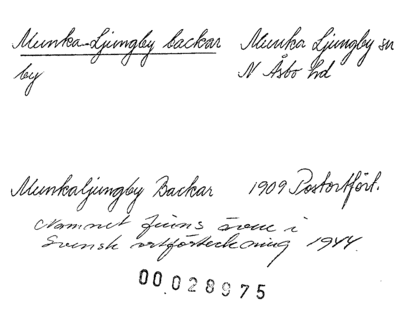 Munka-Ljungby backar Munka Ljungby sn
by N Åsbo hd
Munkaljungby Backar 1909 Postortfört.
Namnet finns även i
Svensk ortförteckning 1944.
00.028975